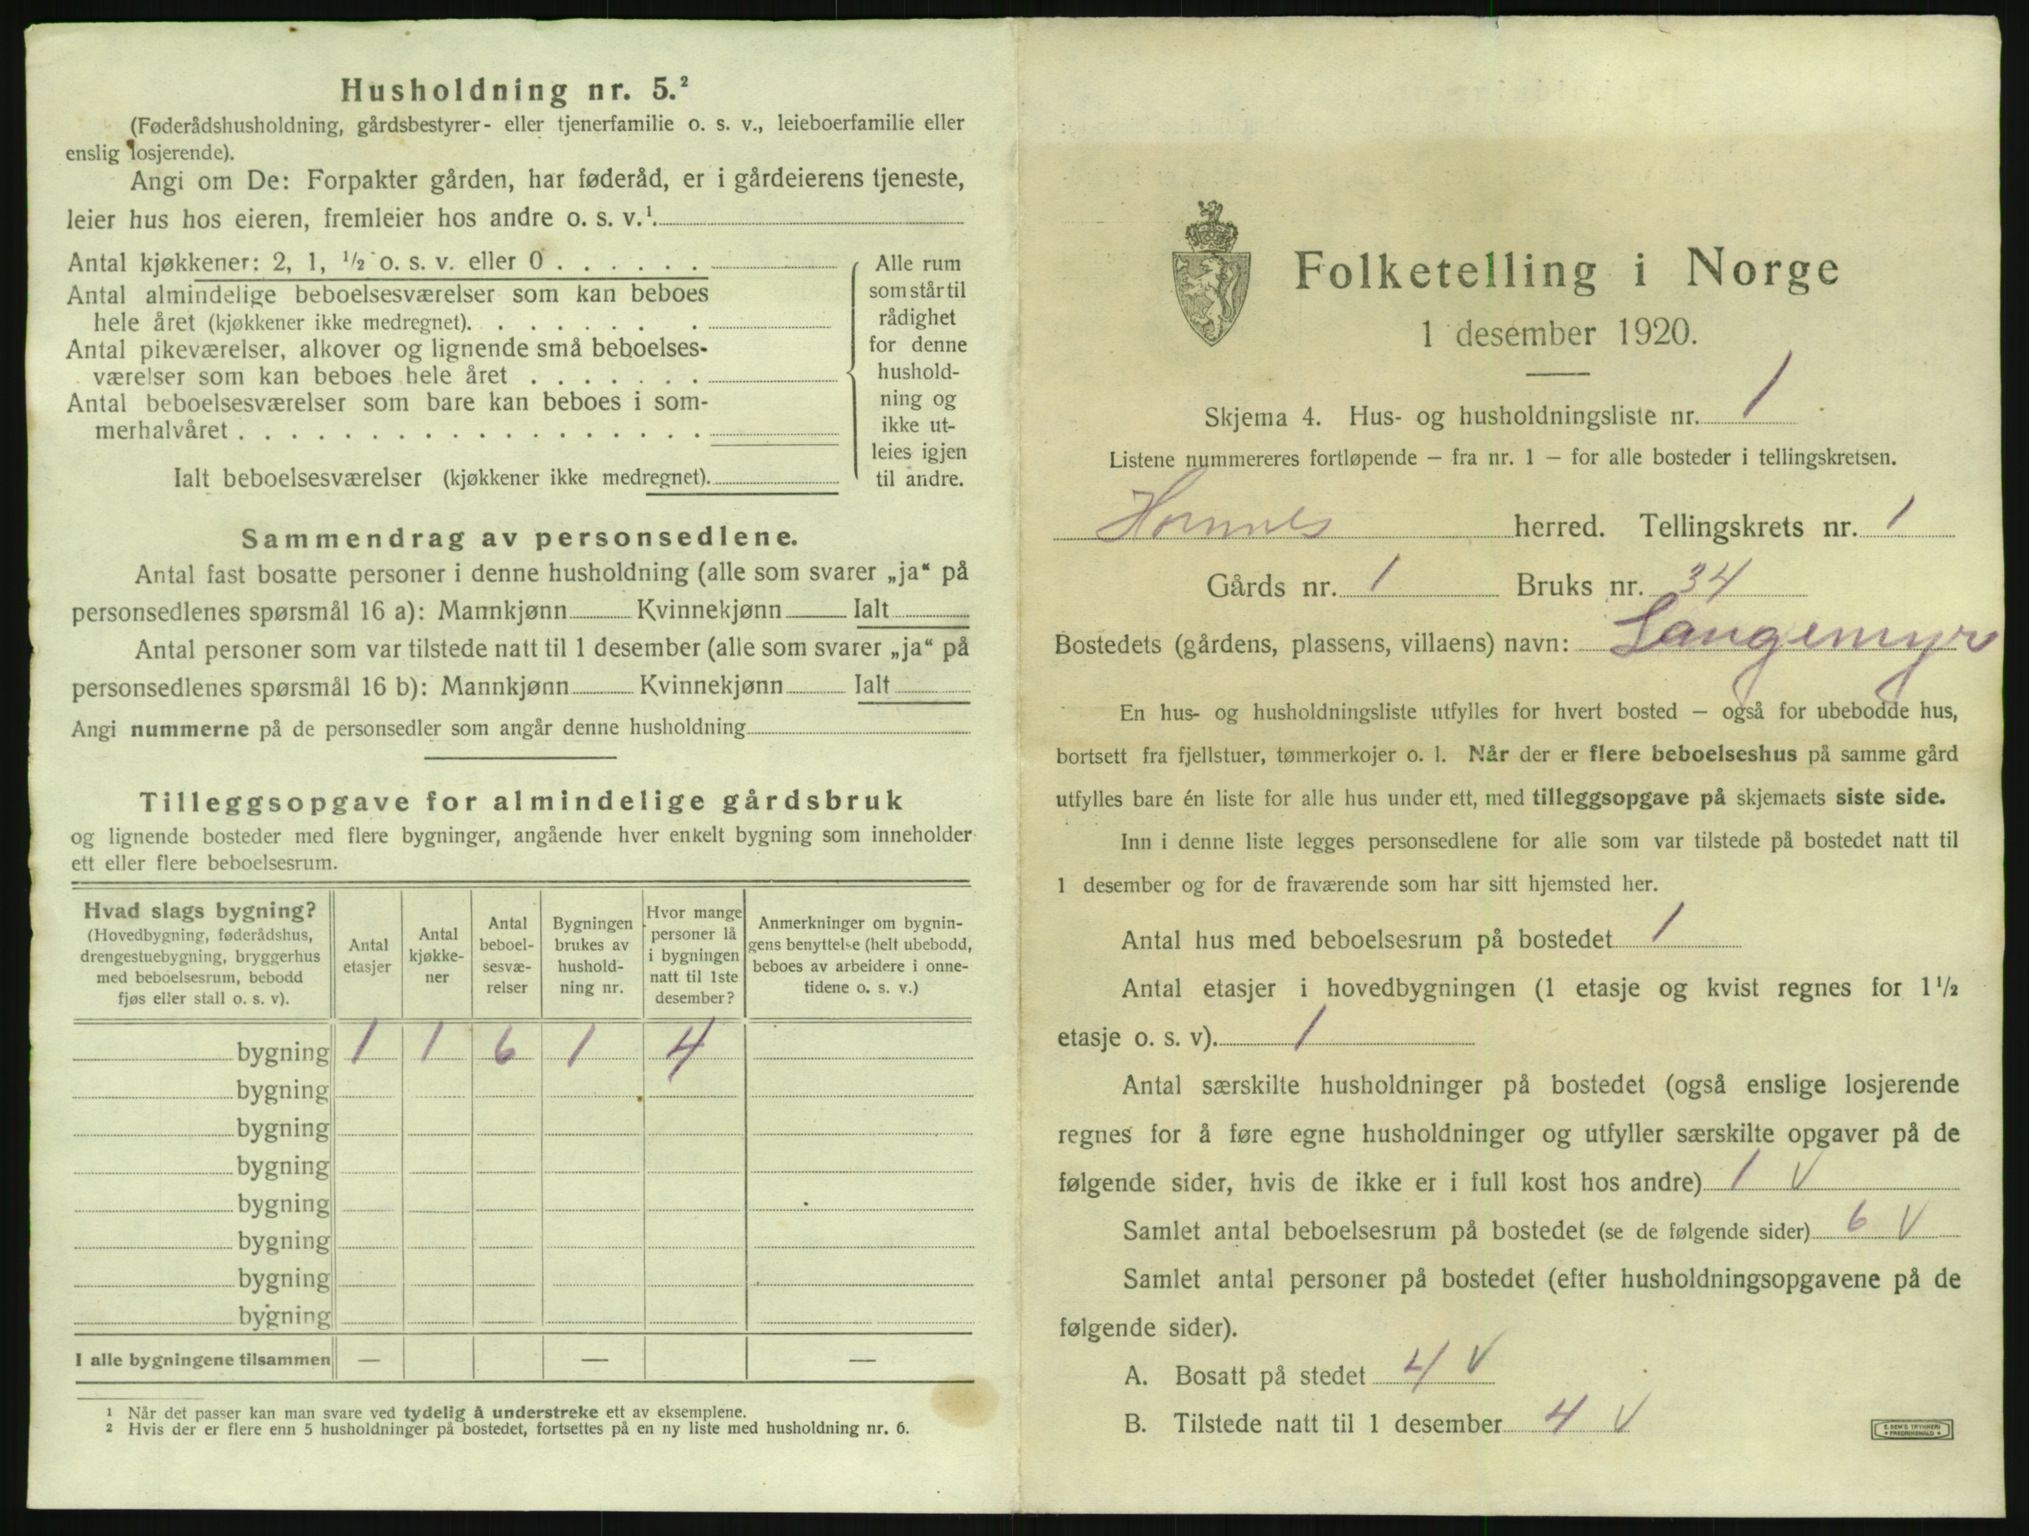 Husholdning nr. 5.²
(Føderådshusholdning, gårdsbestyrer- eller tjenerfamilie o. s. v., leieboerfamilie eller
enslig losjerende).
Angi om De: Forpakter gården, har føderåd, er i gårdeierens tjeneste,
leier hus hos eieren, fremleier hos andre o. s. v.¹
Antal kjøkkener: 2, 1, ½ o. s. v. eller 0 . . . . . .
Antal almindelige beboelsesværelser som kan beboes
hele året (kjøkkener ikke medregnet). . . . . . . .
Antal pikeværelser, alkover og lignende små beboelses-
værelser som kan beboes hele året . . . . . . .
Antal beboelsesværelser som bare kan beboes i som-
merhalvåret . . . . . . . . . . . . . . . . . .
Ialt beboelsesværelser (kjøkkener ikke medregnet).
Alle rum
som står til
rådighet
for denne
hushold-
ning og
ikke ut-
leies igjen
til andre.
Sammendrag av personsedlene.
Antal fast bosatte personer i denne husholdning (alle som svarer „ja“ på
personsedlenes spørsmål 16 a): Mannkjønn Kvinnekjønn Ialt
Antal personer som var tilstede natt til 1 desember (alle som svarer „ja“ på
personsedlenes spørsmål 16 b): Mannkjønn Kvinnekjønn Ialt
Angi nummerne på de personsedler som angår denne husholdning
Tilleggsopgave for almindelige gårdsbruk
og lignende bosteder med flere bygninger, angående hver enkelt bygning som inneholder
ett eller flere beboelsesrum.
Hvad slags bygning?
(Hovedbygning, føderådshus,
drengestuebygning, bryggerhus
med beboelsesrum, bebodd
fjøs eller stall o. s. v).
Antal
etasjer
Antal
kjøkke-
ner
Antal
beboel-
sesvæ-
relser
Bygningen
brukes av
hushold-
ning nr.
Hvor mange
personer lå
i bygningen
natt til 1ste
desember?
Anmerkninger om bygnin-
gens benyttelse (helt ubebodd,
beboes av arbeidere i onne-
tidene o. s. v.)
bygning 1 1 6 1 4
bygning
bygning
bygning
bygning
bygning
bygning
bygning
I alle bygningene tilsammen — — —
¹ Når det passer kan man svare ved tydelig å understreke ett av eksemplene.
² Hvis der er flere enn 5 husholdninger på bostedet, fortsettes på en ny liste med husholdning nr. 6.
Folketelling i Norge
1 desember 1920.
Skjema 4. Hus- og husholdningsliste nr. 1
Listene nummereres fortløpende – fra nr. 1 – for alle bosteder i tellingskretsen.
Hornnes herred. Tellingskrets nr. 1
Gårds nr. 1 Bruks nr. 34
Bostedets (gårdens, plassens, villaens) navn: Langemyr
En hus- og husholdningsliste utfylles for hvert bosted – også for ubebodde hus,
bortsett fra fjellstuer, tømmerkojer o. l. Når der er flere beboelseshus på samme gård
utfylles bare én liste for alle hus under ett, med tilleggsopgave på skjemaets siste side.
Inn i denne liste legges personsedlene for alle som var tilstede på bostedet natt til
1 desember og for de fraværende som har sitt hjemsted her.
Antal hus med beboelsesrum på bostedet 1
Antal etasjer i hovedbygningen (1 etasje og kvist regnes for 1½
etasje o. s. v). 1
Antal særskilte husholdninger på bostedet (også enslige losjerende
regnes for å føre egne husholdninger og utfyller særskilte opgaver på de
følgende sider, hvis de ikke er i full kost hos andre) 1 V
Samlet antal beboelsesrum på bostedet (se de følgende sider) 6 V
Samlet antal personer på bostedet (efter husholdningsopgavene på de
følgende sider).
A. Bosatt på stedet 4 V
B. Tilstede natt til 1 desember 4 V
E. SEM'S TRYKKERI
FREDRIKSHALD